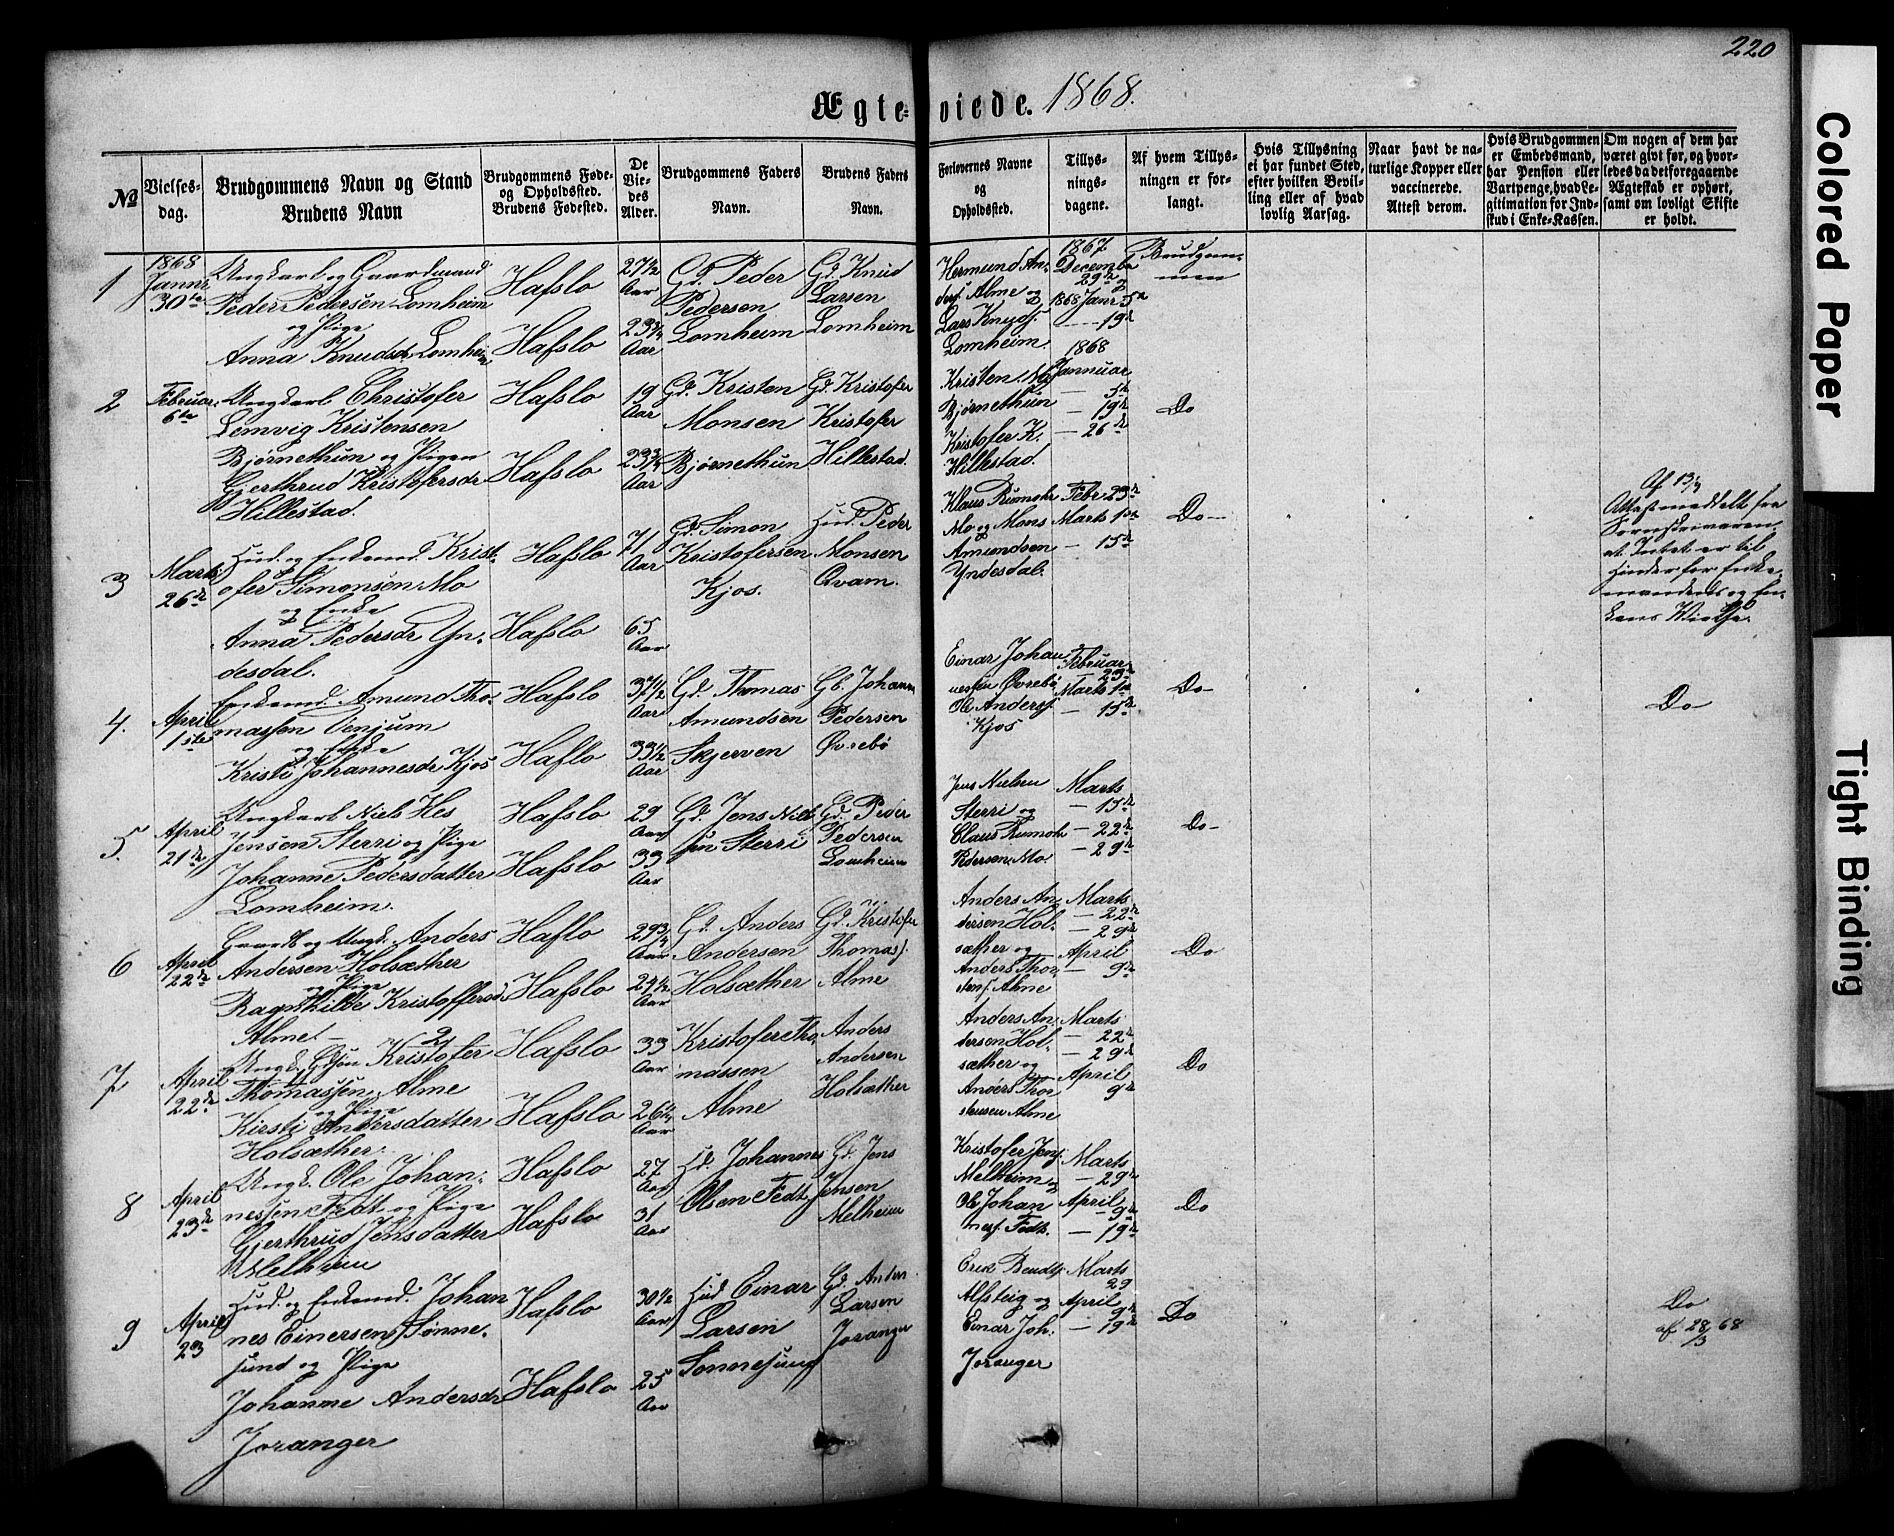 220
Ægte=viede. 1868.
No
Vielses-
dag.
Brudgommens Navn og Stand
Brudens Navn
Brudgommens Føde-
og Opholdssted.
Brudens Fødested.
De
Vie-
des
Alder.
Brudgommens Faders
Navn.
Brudens Faders
Navn.
Forlovernes Navne
og
Opholdssted.
Tillys-
nings-
dagene.
Af hvem Tillys-
ningen er for-
langt.
Hvis Tillysning
ei har fundet Sted,
efter hvilken Bevil-
ling eller af hvad
lovlig Aarsag.
Naar havt de na-
turlige Kopper eller
vaccinerede.
Attest derom.
Hvis Brudgommen
er Embedsmand,
har Pension eller
Vartpenge, hvad Le-
gitimation for Ind-
skud i Enke-Kassen.
Om nogen af dem har
været givt før, og hvor-
ledes da det foregaaende
Ægteskab er ophørt,
samt om lovligt Skifte
er holdt.
1
1868
Januar
30te
Ungkarl og Gaardmand
Peder Pedersen Lomheim
og Pige
Anna Knudsdr Lomheim
Hafslo
Hafslo
27 1/2
Aar
23 3/4
Aar
Gd Peder
Pedersen
Lomheim
Gd Knud
Larsen
Lomheim
Hermund An-
ders. Alme og
Lars Knuds.
Lomheim.
1867
Decembr
29de
1868 Janr 5te
— 19de
Brudgom-
men
2
Februar
6te
Ungkarl Christofer
Lemvig Kristensen
Bjørnethun og Pigen
Gjerthrud Kristofersdr
Hillestad.
Hafslo
Hafslo
19
Aar
23 3/4
Aar
Gd. Kristen
Monsen
Bjørnethun
Gd. Kristofer
Kristofer
Hillestad.
Kristen M.
Bjørnethun
Kristofer K.
Hillestad.
1868
Januuar
— 5te
— 19de
— 26de
Do
3
Marts
26de
Hud. og Enkemd. Krist-
ofer Simonsen Mo
og Enke
Anna Pedersdr Yn-
desdal.
Hafslo
Hafslo
71
Aar
65
Aar
Gd. Simon
Kristofersen
Kjos.
Hud. Peder
Monsen
Qvam.
Klaus Rumohr
Mo og Mons
Amundsen
Yndesdal.
Febr. 23de
Marts 1ste
— 15de
Do—
Af 13/3
Attest meddelt fra
Sorenskriveren
at Intet er til
Hinder for Enke-
mandens og En-
kens Vielse.
4.
April
1ste
Enkemd. Amund Tho-
massen Venjum
og Enke
Kristi Johannesdr Kjos
Hafslo
Haflo
37 1/2
Aar
33 1/2
Aar
Gd. Thomas
Amundsen
Skjerven
Gb. Johann
Pedersen
Øvrebö
Einar Johan
nessen Øvrebö
Ole Anders.
Kjos
Februar
23de
Marts 1ste
— 15de
Do—
Do
5.
April
21de
Ungkarl Niels Hes
Jensen Sterri og Pige
Johanne Pedersdatter
Lomheim.
Hafslo
Hafslo
29
Aar
33
Aar
Gd. Jens Niel-
sen Sterri
Gd. Peder
Pedersen
Lomheim
Jens Nielsen
Sterri og
Claus Rumohr
Pedersen Mo.
Marts
— 15de
— 22de
— 29de
Do—
6
April
22de
Gaardb og Ungk. Anders
Andersen Holsæther
og Pige
Ragnhilde Kristoffersdr
Alme.—
Haflo
Hafslo
29 3/4
Aar
24 1/2
Aar
Gd. Anders
Andersen
Holsæther
Gd. Kristofer
Thomas.
Alme
Anders An-
dersen Hol-
sæther og
Anders Thor-
stens. Alme
Marts
— 22de
— 29de
April
— 9de
Do
7
April
22de
Ungk. Gdsøn Kristofer
Thomassen Alme
og Pige
Kirsti Andersdatter
Holsæther.
Hafslo
Hafslo
33
Aar
26 1/4
Aar
Kristofer Tho-
massen
Alme
Anders
Andersen
Holsæther
Anders An-
dersen Hol-
sæther og
Anders Thor
stensen Alme
Marts
— 22de
— 29de
April
9de
Do
8
April
23de
Ungk. Ole Johan-
nessen Fedt og Pige
Gjerthrud Jensdatter
Melheim
Hafslo
Hafslo
27
Aar
31
Aar
Hd. Johannes
Olsen Fedt
Gd. Jens
Jensen
Melheim
Kristofer Jens.
Melheim og
Ole Johan
nes. Fedt.
Marts
— 29de
April
— 9de
— 19de
Do
9
April
23
Hud. og Enkemd. Johan
nes Einersen Sønne-
sund og Pige
Johanne Andersdr
Joranger
Hafslo
Hafslo
30 1/2
Aar
25
Aar
Hud Einar
Larsen
Sonnesund
Gd. Anders
Larsen
Joranger
Erik Bendt.
Alfsteig og
Einar Joh.
Joranger
Marts
29
April
9de
— 19de
Do
Do
af 28/3 68
Colored Paper
Tight Binding